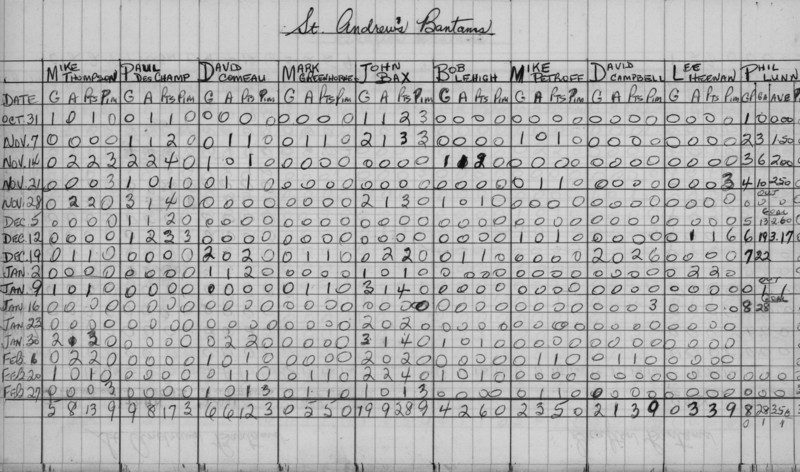 St. Andrew's Bantams
MIKE THOMPSON PAUL DESCHAMP DAVID COMEAU MARK GREENHORNE JOHN BAX BOB LEHIGH MIKE PETROFF DAVID CAMPBELL LEE HEENAN PHIL LUNN
DATE G A Pts Pim G A Pts Pim G A Pts Pim G A Pts Pim G A Pts Pim G A Pts Pim G A Pts Pim G A Pts Pim G A Pts Pim GP GA AVE
OCT. 31 1 0 1 0 0 1 1 0 0 0 0 0 0 0 0 0 1 1 2 3 0 0 0 0 0 0 0 0 0 0 0 0 0 0 0 0 1 0 0.00
NOV. 7 0 0 0 0 1 1 2 0 0 1 1 0 0 1 1 0 2 1 3 3 0 0 0 0 1 0 1 0 0 0 0 0 0 0 0 0 2 3 1.50
NOV. 14 0 2 2 3 2 2 4 0 1 0 1 0 0 0 0 0 0 0 0 0 1 1 2 0 0 0 0 0 0 0 0 0 0 0 0 0 3 6 2.00
NOV. 21 0 0 0 3 1 0 1 0 0 1 1 0 0 0 0 0 0 0 0 0 0 0 0 0 0 1 1 0 0 0 0 0 0 0 0 3 4 10 2.50
NOV. 28 0 2 2 0 3 1 4 0 0 0 0 0 0 0 0 0 2 1 3 0 1 0 1 0 0 0 0 0 0 0 0 0 0 0 0 0 OUT 0 0 0
DEC 5 0 0 0 0 1 1 2 0 0 0 0 0 0 0 0 0 0 0 0 0 0 0 0 0 0 0 0 0 0 0 0 0 0 0 0 0 GOAL 5 13 2.60
DEC 12 0 0 0 0 1 2 3 3 0 0 0 0 0 0 0 0 0 0 0 0 0 0 0 0 1 0 1 0 0 0 0 0 0 1 1 6 6 19 3.17
DEC 19 0 1 1 0 0 0 0 0 2 0 2 0 0 1 1 0 0 2 2 0 0 1 1 0 0 0 0 0 2 0 2 6 0 0 0 0 7 22
JAN 2 0 0 0 0 0 0 0 0 1 1 2 0 0 0 0 0 1 0 1 0 0 0 0 0 0 0 0 0 0 0 0 0 0 2 2 0
JAN. 9 1 0 1 0 0 0 0 0 0 0 0 0 0 1 1 0 3 1 4 0 0 0 0 0 0 0 0 0 0 0 0 0 0 0 0 0 OUT 0 1 1
JAN 16 0 0 0 0 0 0 0 0 0 0 0 0 0 0 0 0 0 0 0 0 0 0 0 0 0 0 0 0 0 0 0 3 0 0 0 0 GOAL 8 28
JAN. 23 0 0 0 0 0 0 0 0 0 0 0 0 0 0 0 0 2 0 2 0 0 0 0 0 0 0 0 0 0 0 0 0 0 0 0 0
JAN. 30 2 0 2 0 0 0 0 0 0 2 2 0 0 0 0 0 3 1 4 0 1 0 1 0 0 0 0 0 0 0 0 0 0 0 0 0
FEB. 6 0 2 2 0 0 0 0 0 1 0 1 0 0 0 0 0 2 0 2 0 0 0 0 0 0 1 1 0 0 1 1 0 0 0 0 0
FEB. 20 1 0 1 0 0 0 0 0 0 1 1 0 0 1 1 0 2 2 4 0 1 0 1 0 0 0 0 0 0 0 0 0 0 0 0 0 0 0 0
FEB 27 0 0 0 3 0 0 0 0 1 0 1 3 0 1 1 0 1 0 1 3 0 0 0 0 0 1 1 0 0 0 0 0 0 0 0 0 0 0 0
5 8 13 9 9 8 17 3 6 6 12 3 0 5 5 0 19 9 28 9 4 2 6 0 2 3 5 0 2 1 3 9 0 3 3 9 8 28 3.50
0 1 1